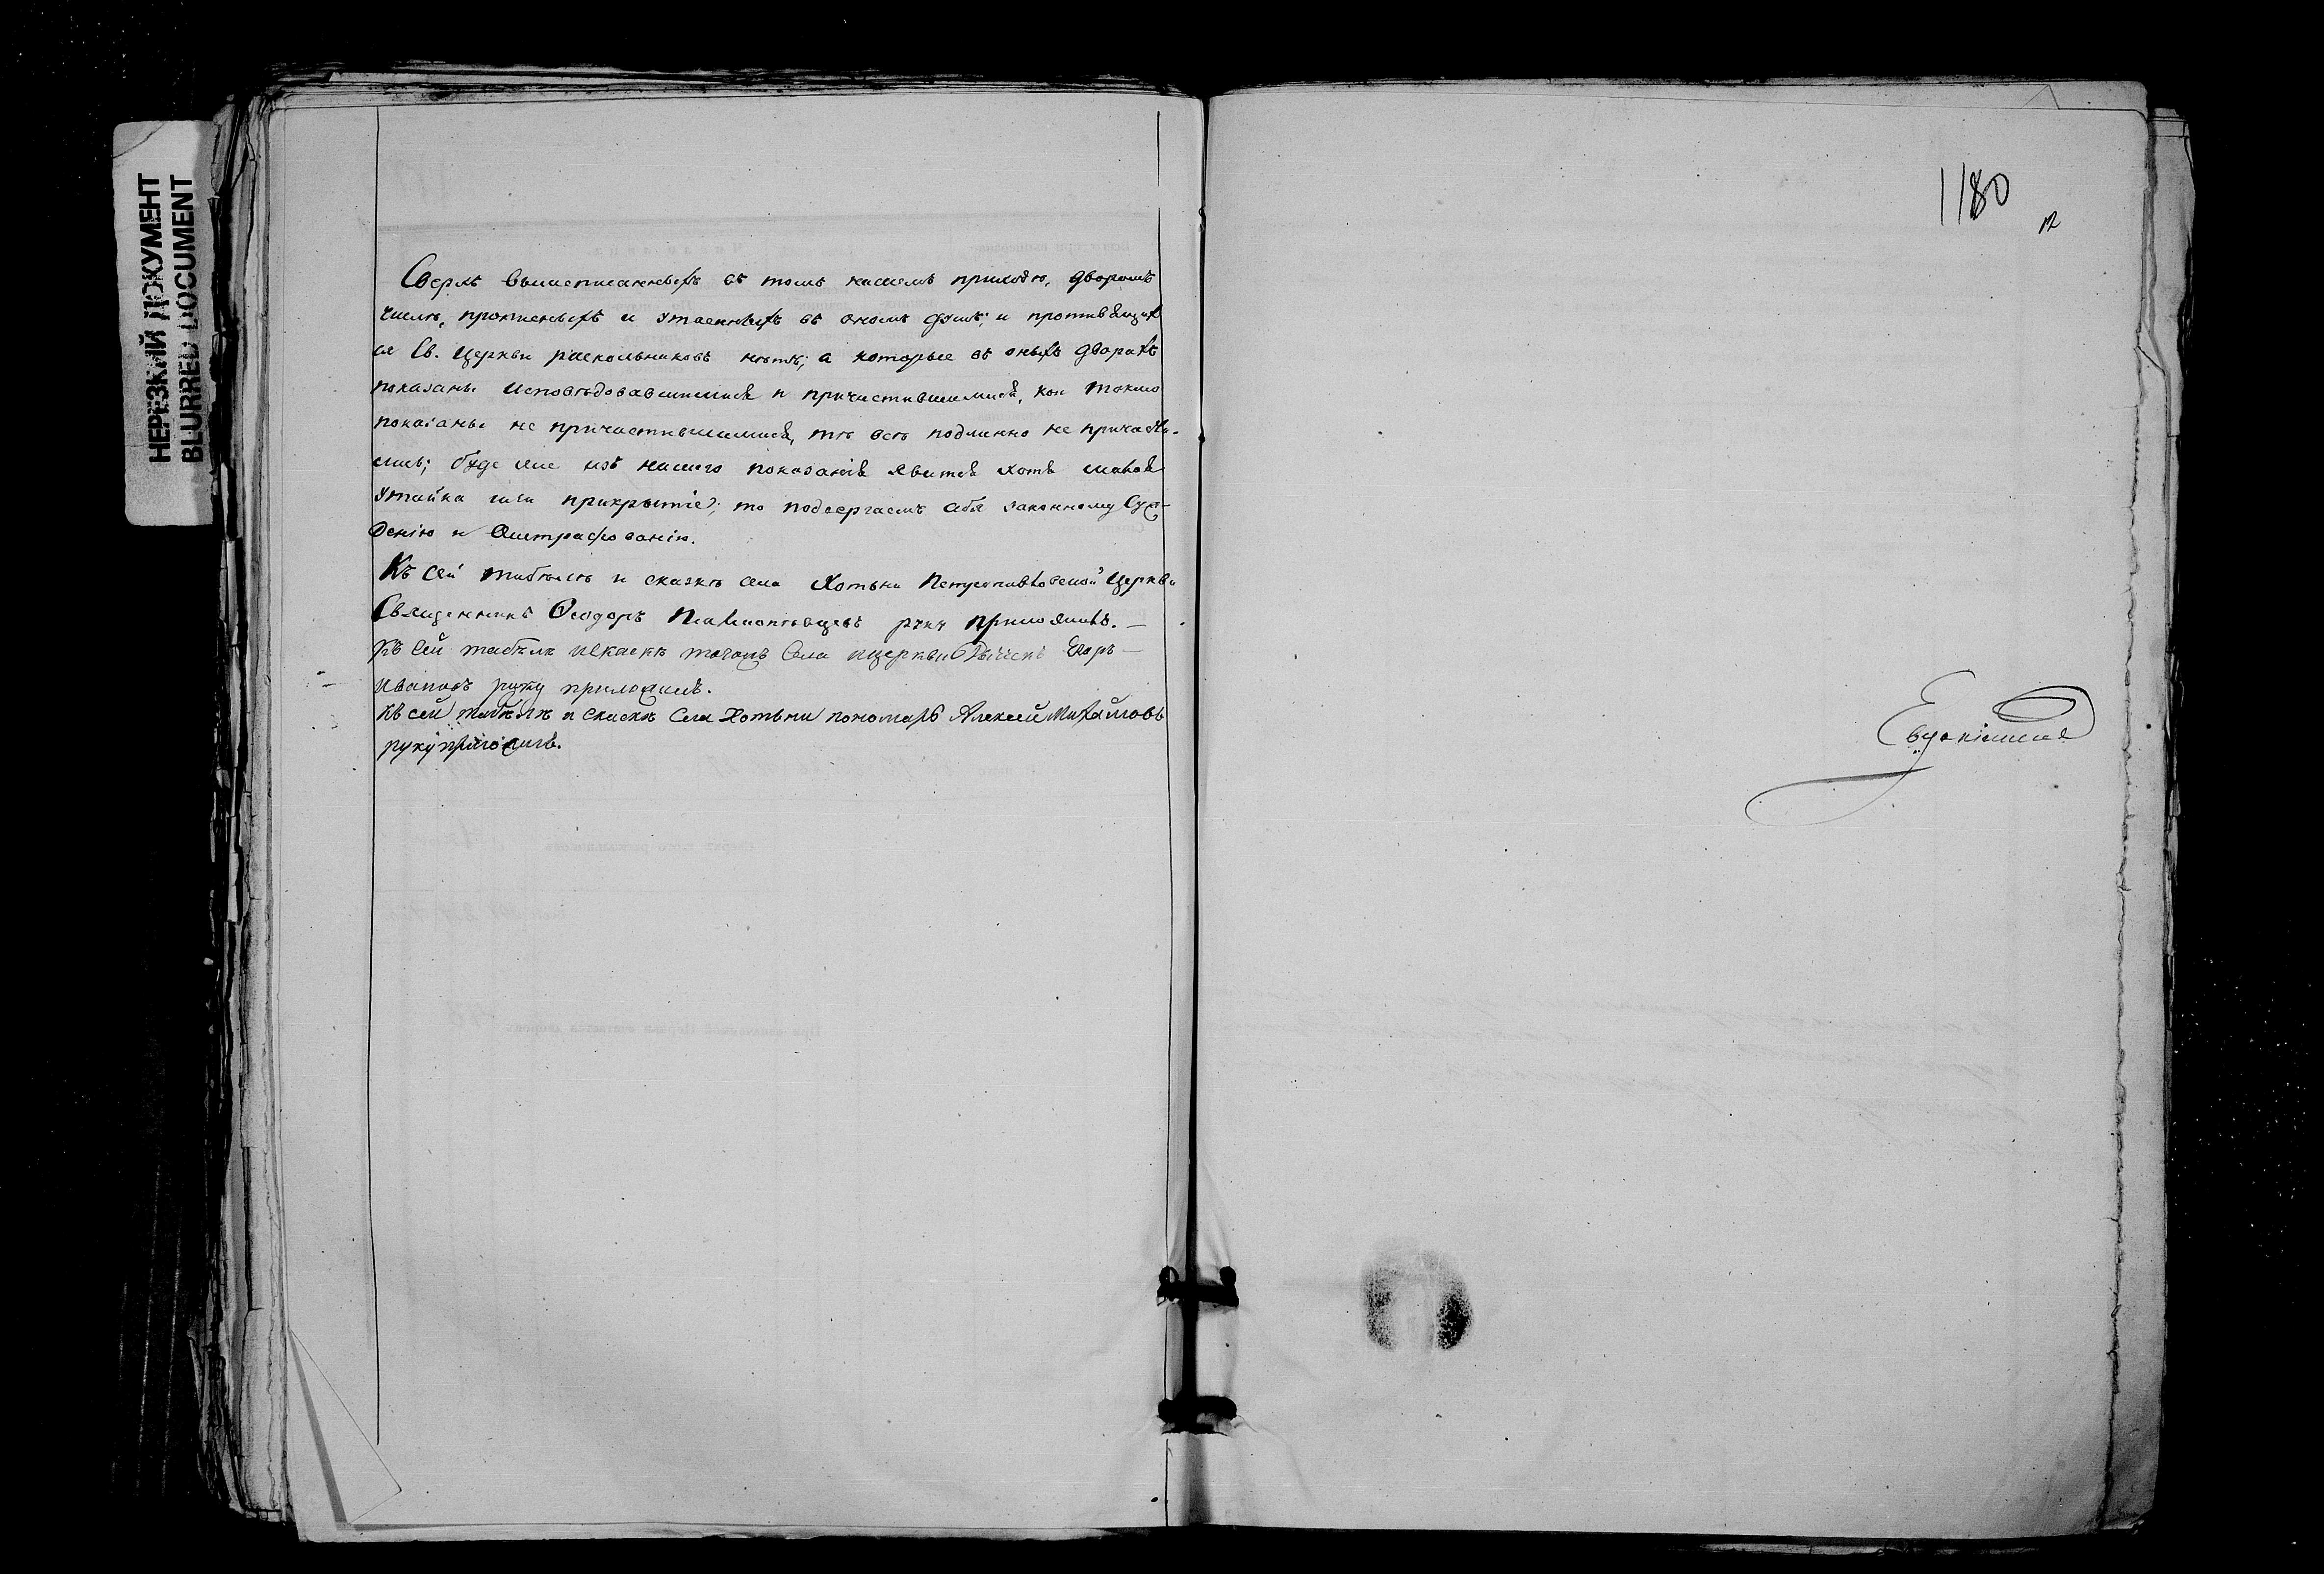 НЕРЕЗКИЙ ДОКУМЕНТ
BLURRED DOCUMENT
Сверхъ вышеписанныхъ въ томъ нашемъ приходѣ, дворовъ
числѣ, прописныхъ и утаенныхъ въ ономъ душъ; и противящих
ся Св. Церкви раскольниковъ нѣтъ; а которые въ оныхъ дворахъ
показаны исповѣдовавшимися и причастившимися, кои токмо
показаны не причастившимися, тѣ всѣ подлинно не причасти-
лись; буде же изъ нашего показанія явится хотя малая
утайка или прикрытіе; то подвергаемъ себя законному Суж-
денію и Оштрафованію.
Къ сей табѣлѣ и сказкѣ села Хотыни Петропавловской Церкви
Священникъ Ѳеодоръ руку приложилъ. —
Къ сей табѣлѣ искаскѣ тогожъ Села ицеркви Дьячекъ Егоръ —
Ивановъ руку приложилъ.
Къ сей табѣлѣ и Скаскѣ Села Хотыни пономарь Алексей Михайловъ
руку приложилъ.
1180